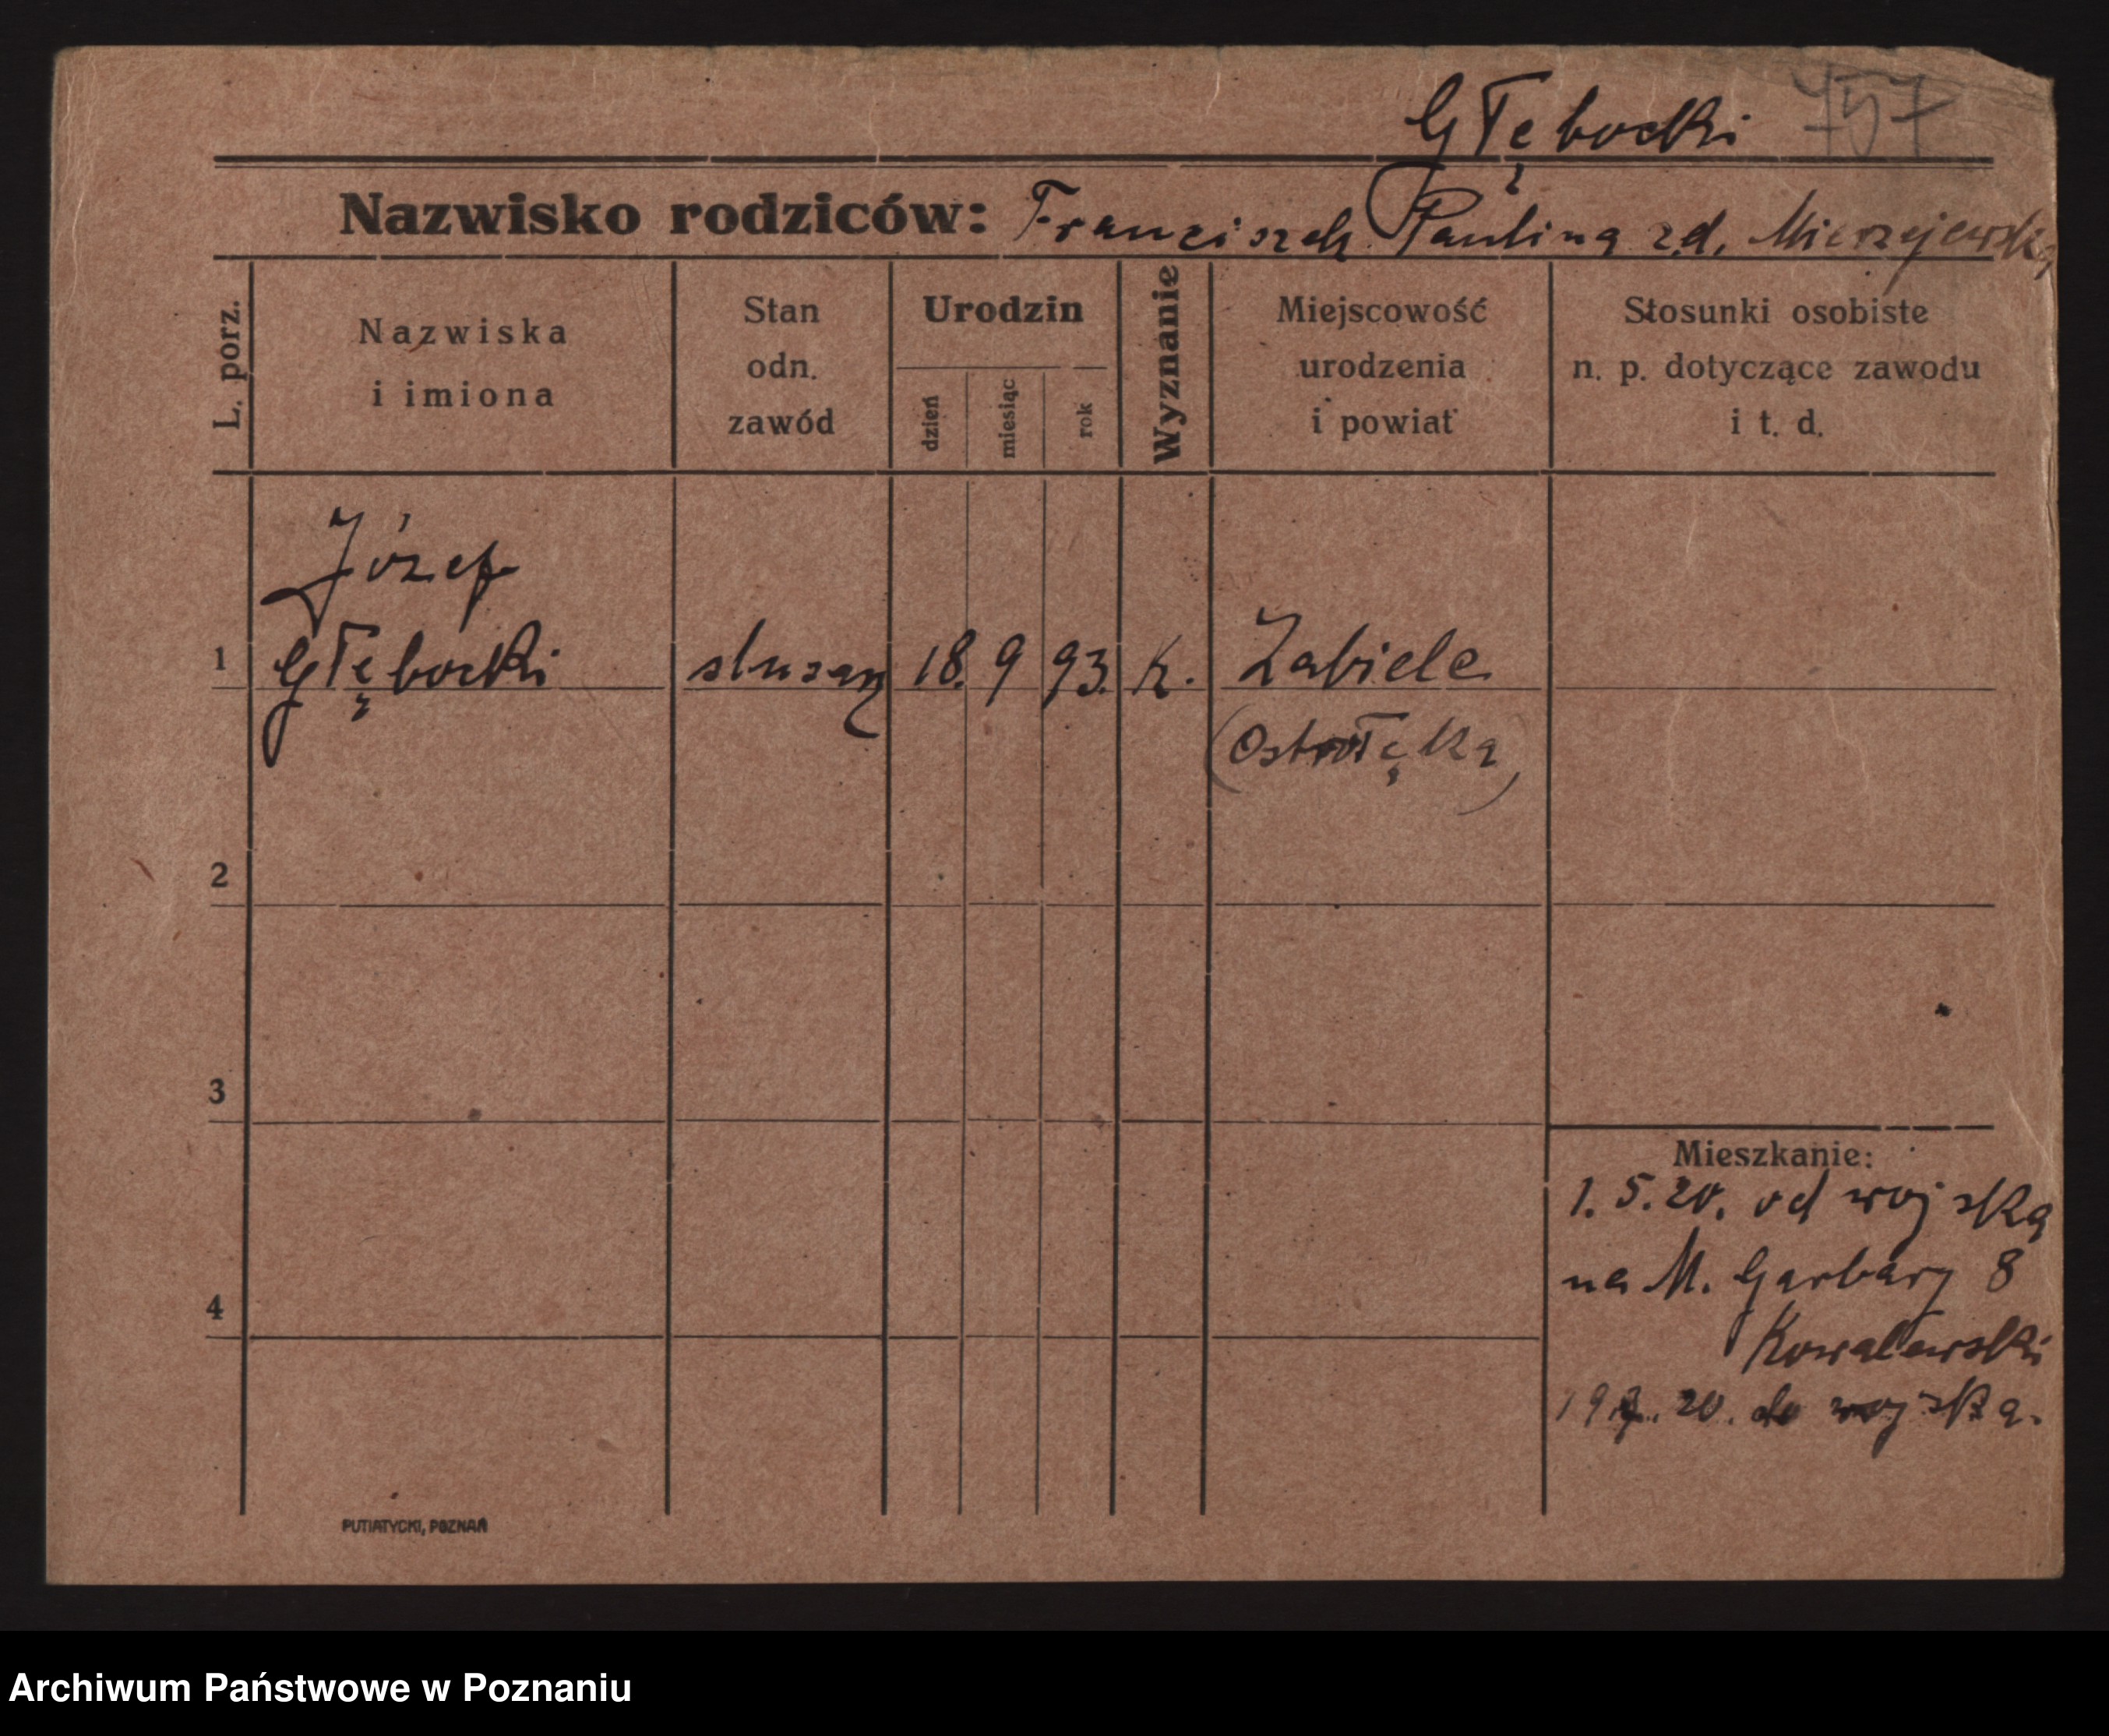 Głębocki 757
Nazwisko rodziców: Franciszek Paulina z d. Mierzejewska
L. porz.
Nazwiska
i imiona
Stan
odn.
zawód
Urodzin
dzień
miesiąc
rok
Wyznanie
Miejscowość
urodzenia
i powiat
Stosunki osobiste
n. p. dotyczące zawodu
i t. d.
Józef
1 Głębocki 18. 9 93. k. Zabiele
(Ostrołęka)
2
3
4
Mieszkanie:
1. 5. 20. od wojska
na M. Garbary 8
Kowalewski
20. do wojska.
PUTIATYCKI, POZNAŃ
Archiwum Państwowe w Poznaniu